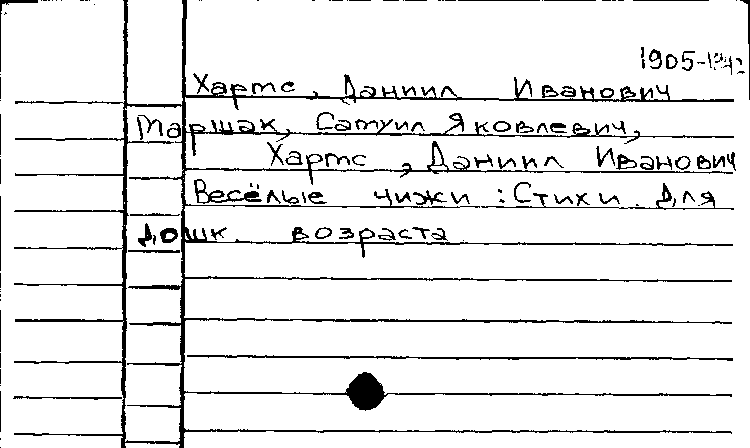 1905-1942
Хармс, Даниил Иванович
Маршак, Самуил Яковлевич,
Хармс, Даниил Иванович
Весёлые чижи : Стихи. Для
дошк. возраста